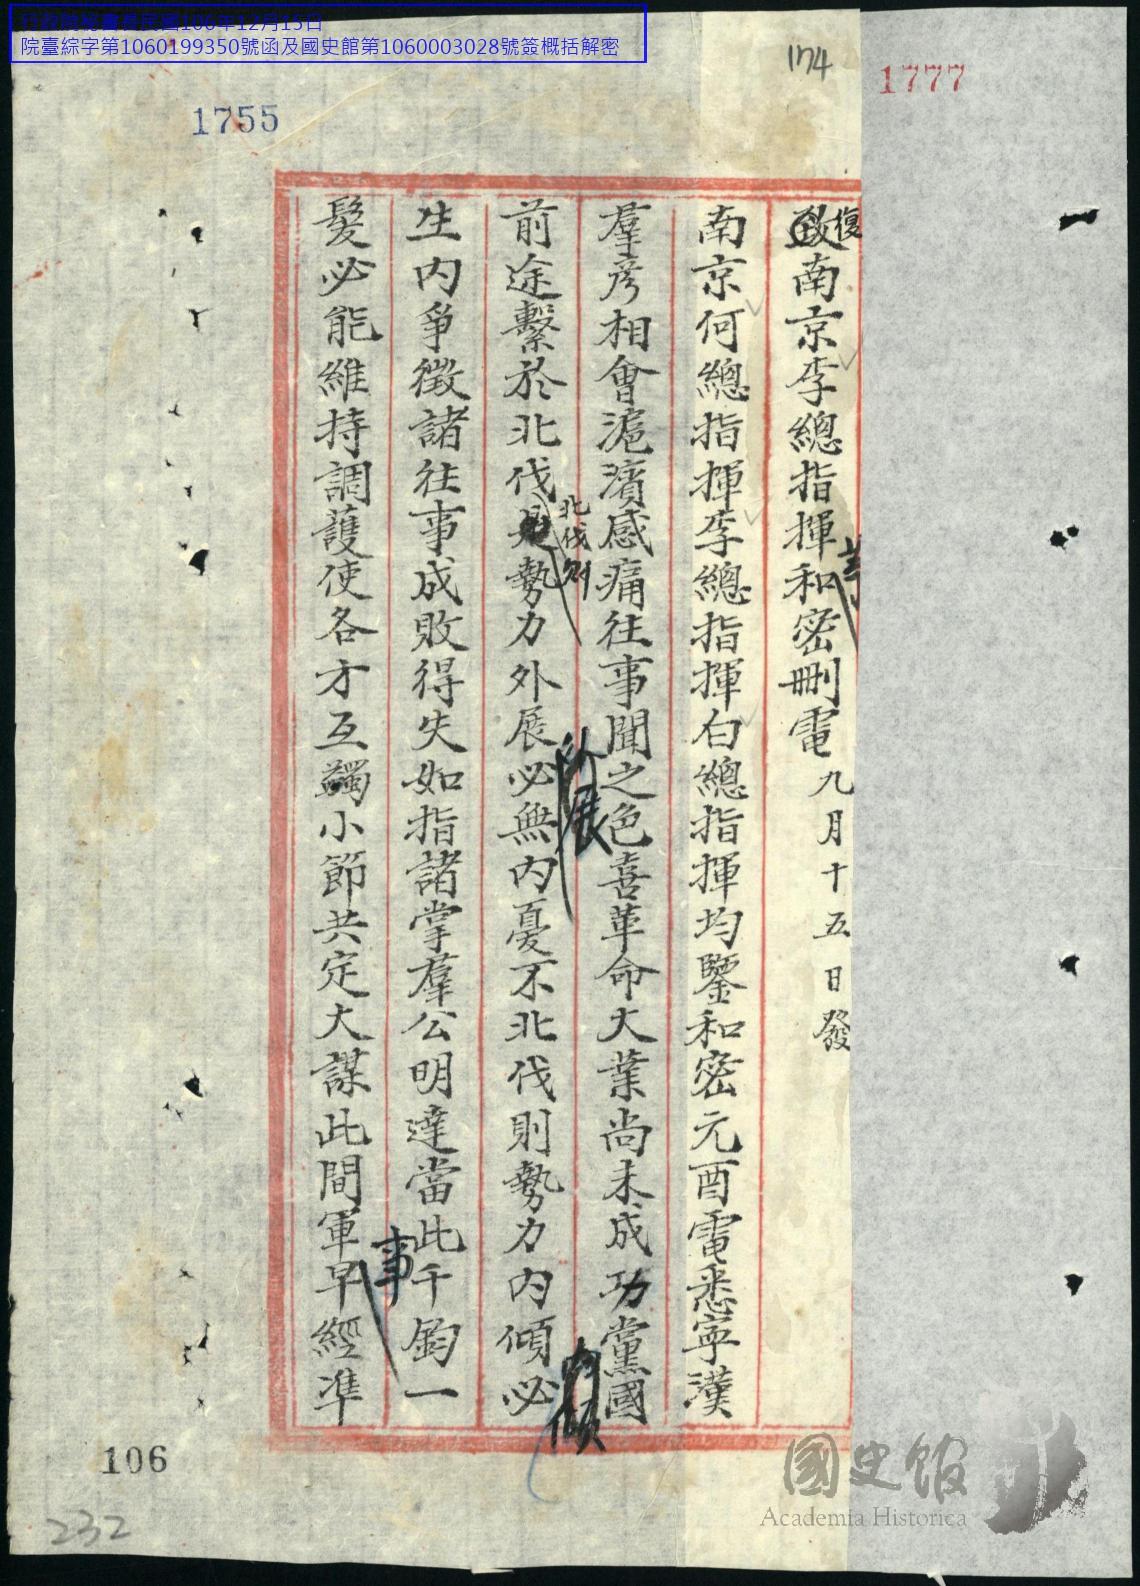 行政院秘書長民國106年12月15日
院臺綜字第1060199350號函及國史館第1060003028號簽概括解密
174
1777
1755
復
致南京李總指揮和密刪電九月十五日發
等
南京何總指揮李總指揮白總指揮均鑒和密元酉電悉寧漢
羣彥相會滬濱感痛往事聞之色喜革命大業尚未成功黨國
北伐則
外展
內傾
前途繫於北伐是勢力外展必無內憂不北伐則勢力內傾必
生內爭徵諸往事成敗得失如指諸掌羣公明達當此千鈞一
事
髮必能維持調護使各方互蠲小節共定大謀此間軍早經準
106
232
國史館
Academia Historica